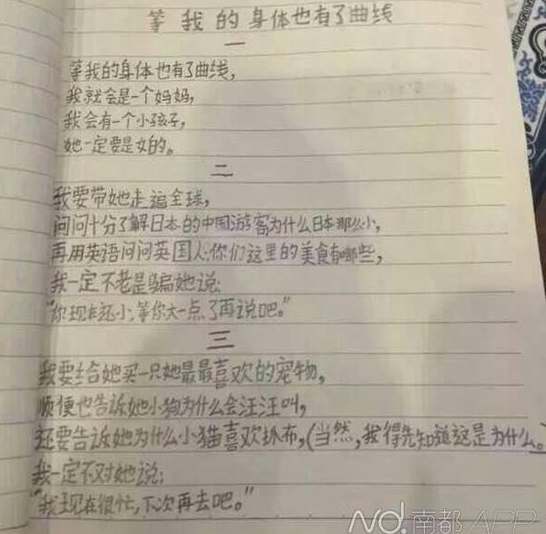 等我的身体也有了曲线
一
等我的身体也有了曲线，
我就会是一个妈妈，
我会有一个小孩子，
她一定要是女的。
二
我要带她走遍全球，
问问十分了解日本的中国游客为什么日本那么小，
再用英语问问英国人：你们这里的美食有哪些，
我一定不老是骗她说：
“你现在还小，等你大一点了再说吧。”
三
我要给她买一只她最最喜欢的宠物，
顺便也告诉她小狗为什么会汪汪叫，
还要告诉她为什么小猫喜欢抓布，（当然，我得先知道这是为什么。
我一定不对她说：
“我现在很忙，下次再去吧。”
ND.南都APP